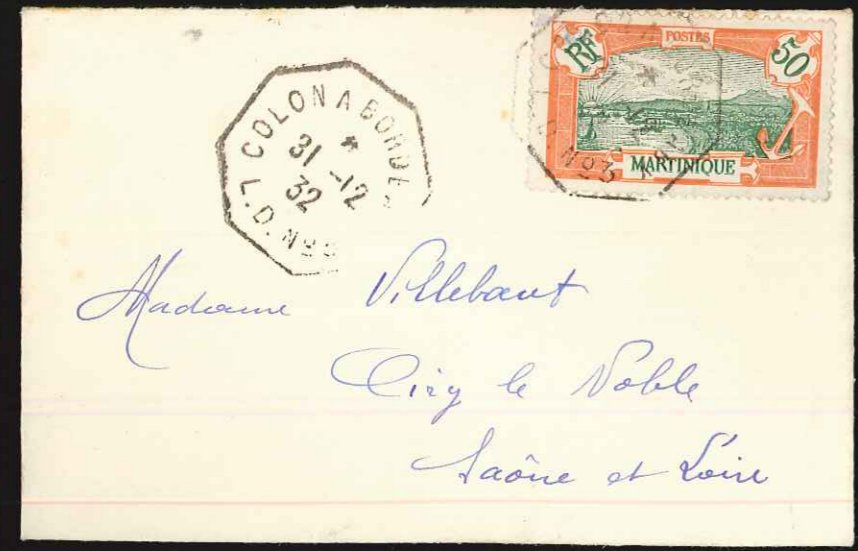 COLON A BORDE
31 -12
32
L.D.Nº3
POSTES
RF
50
MARTINIQUE
Madame Villebaut
Ciry le Noble
Saône et Loire